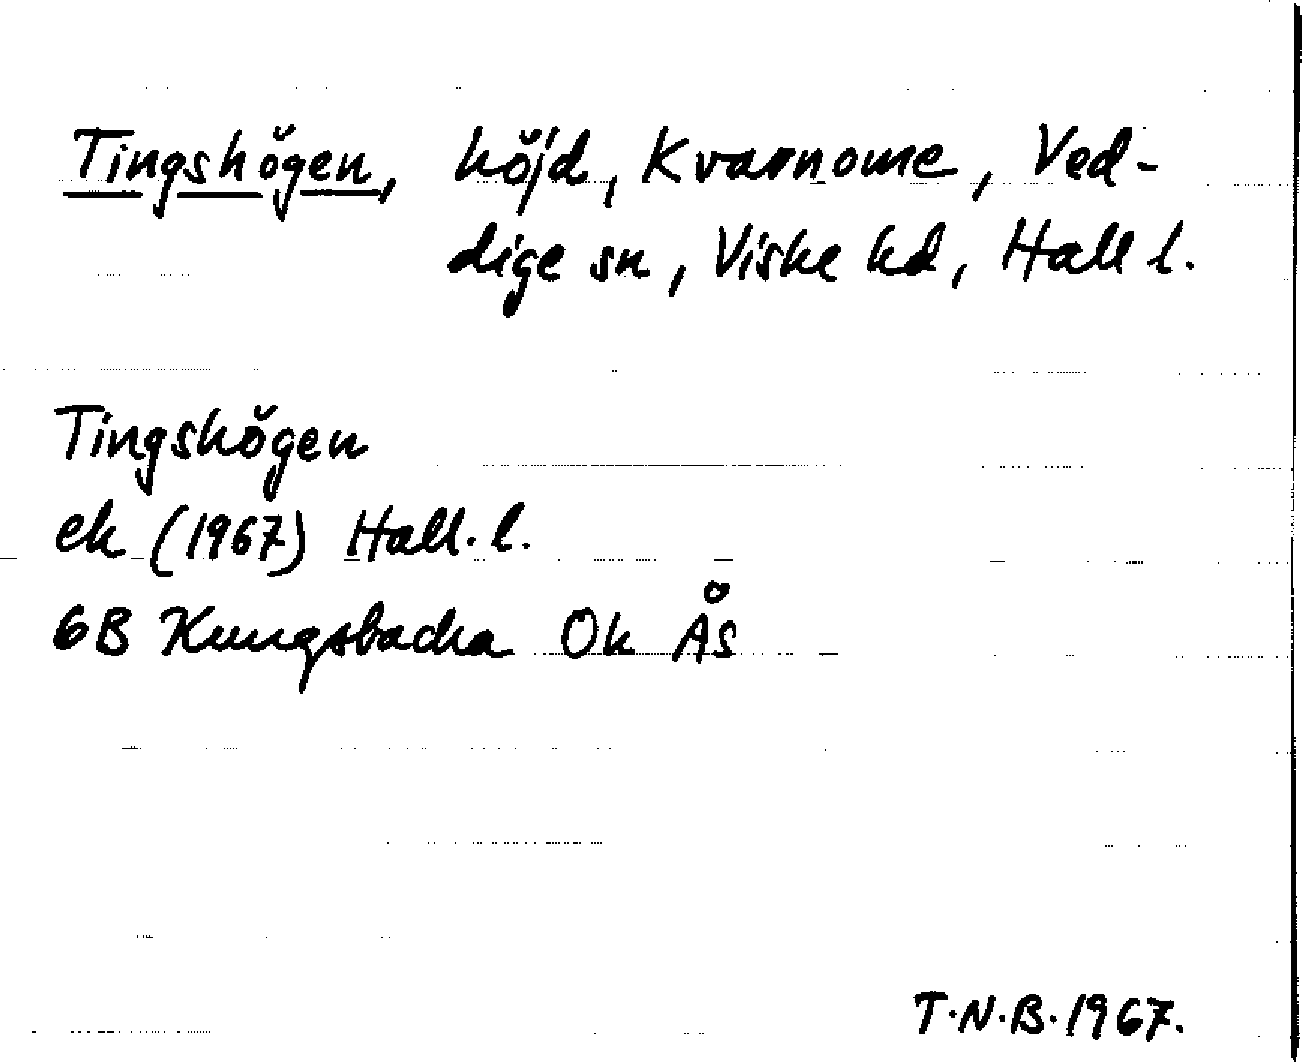 Tingshögen, höjd, Kvarnome, Ved-
dige sn, Viske hd, Hall l.
Tingshögen
ek (1967) Hall. l.
6B Kungsbacka Ok Ås
T.N.B. 1967.